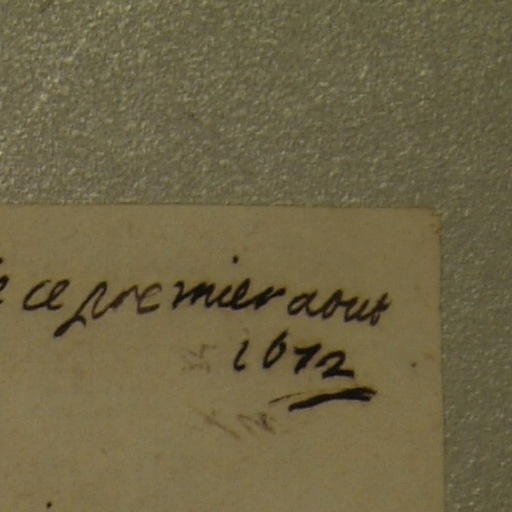 ce premier aout
1672